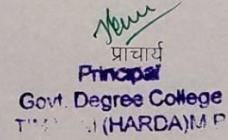 प्राचार्य
Principal
Govt. Degree College
(HARDA)M.P